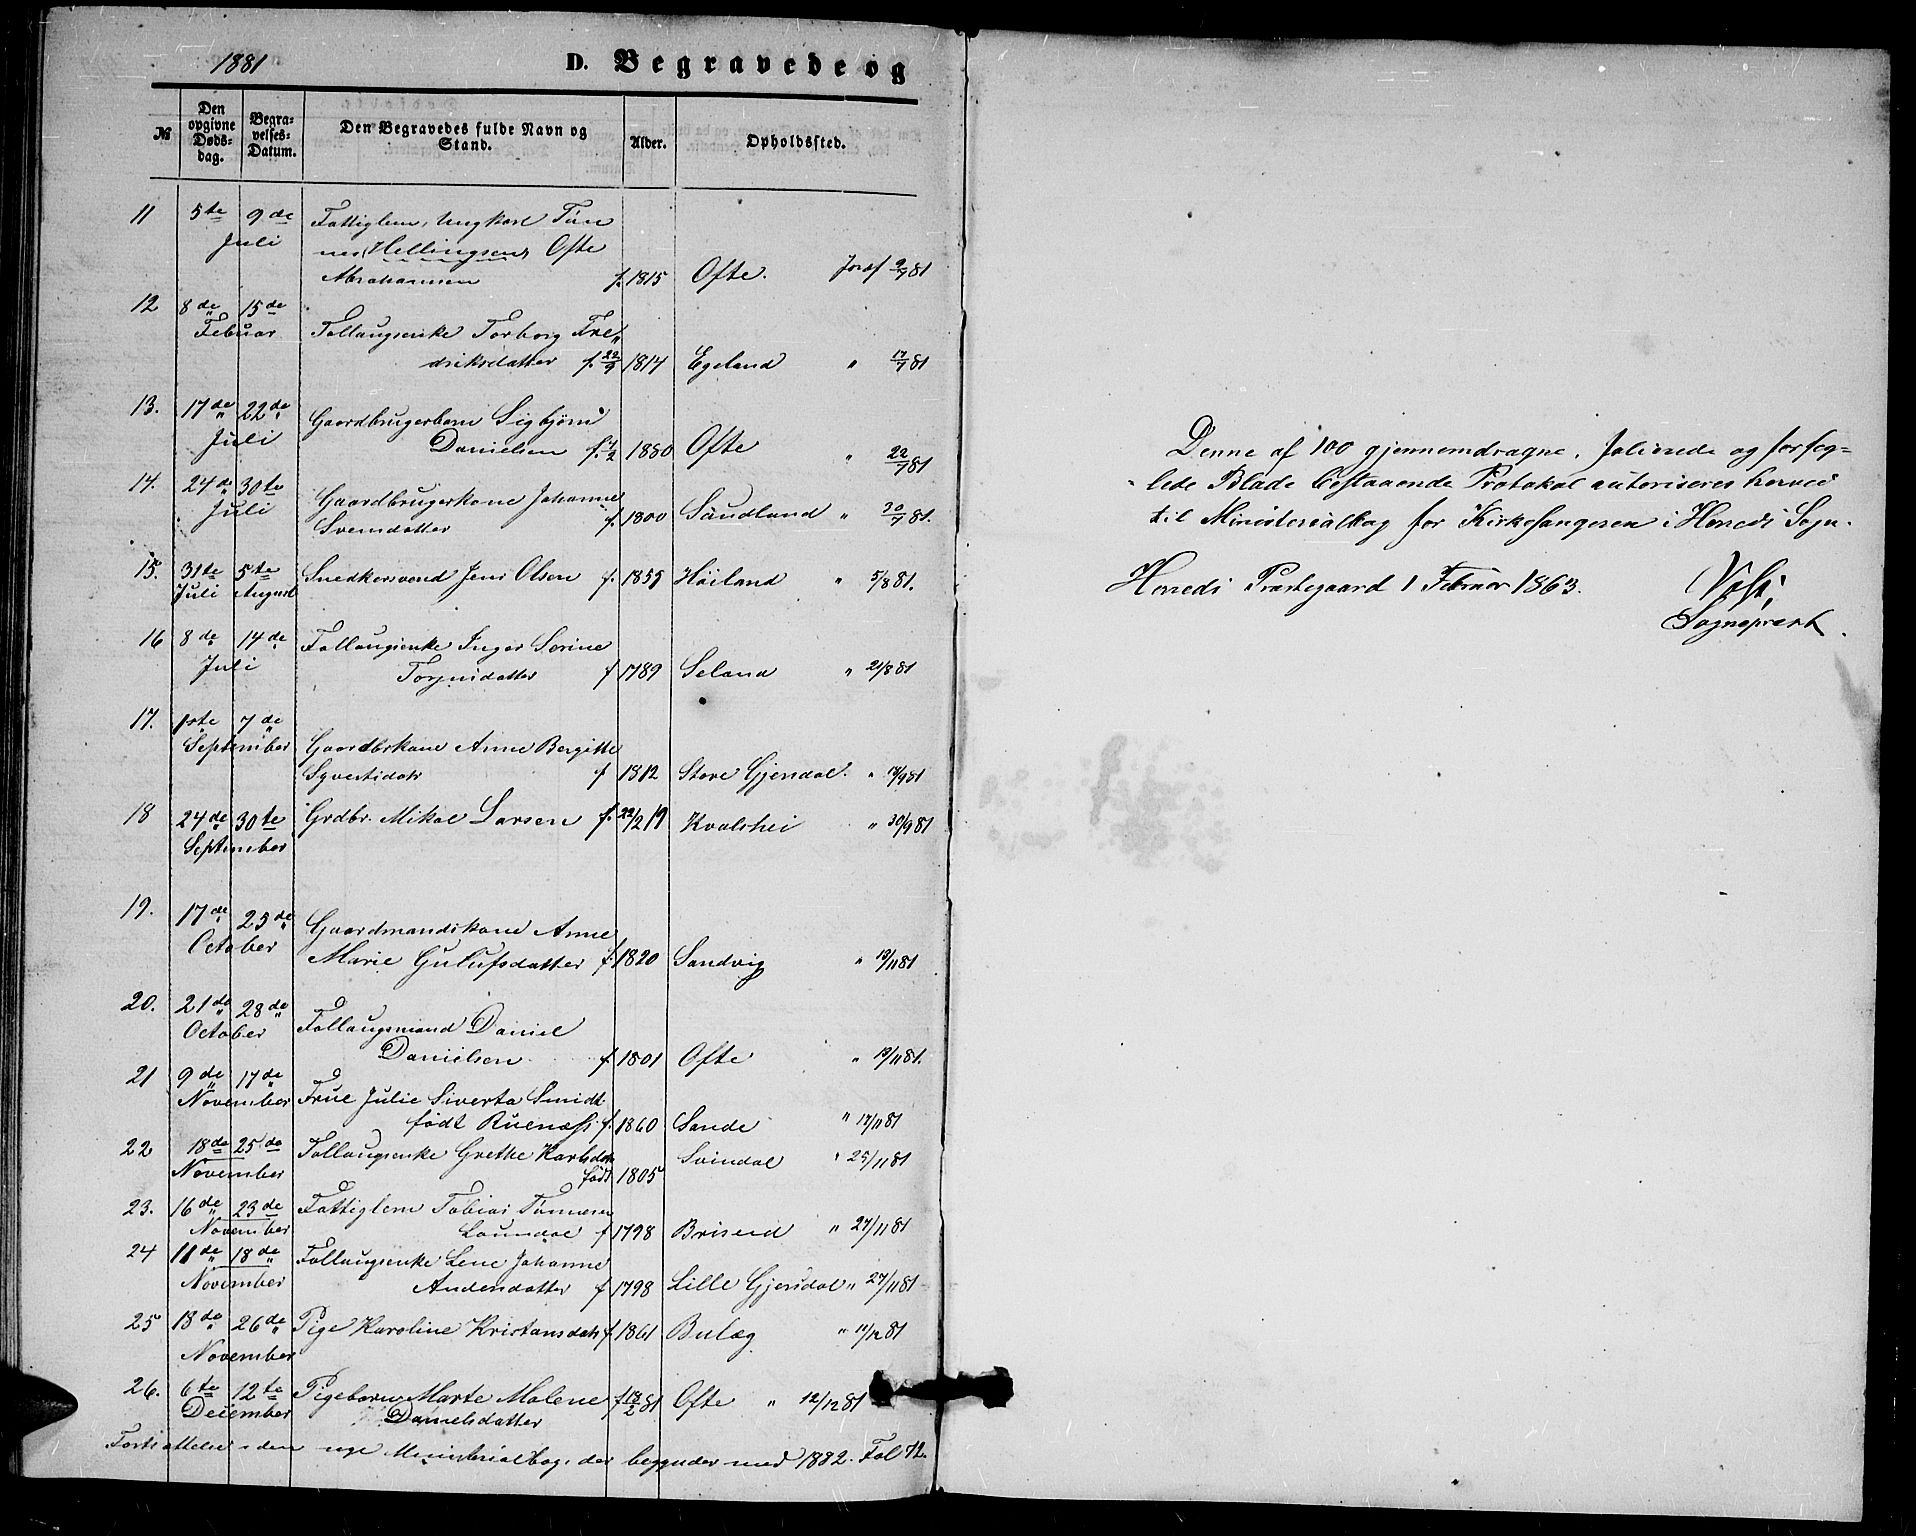 1881
D. Begravede og
№ Den opgivne Døds-dag. Begra-velses-Datum. Den Begravedes fulde Navn og Stand. Alder. Opholdssted.
11 5te 9de Fattiglem, Ungkarl Tøn
Juli nes Hellingsen Ofte
Abrahamsen f. 1815 Ofte. Jordf 9/7 81
12 8de 15de
Febuar Follaugsenke Torborg Fre„
driksdatter f. 22/9 1814 Egeland " 17/7 81
13. 17de 22de Gaardbrugerbarn Sigbjørn
Juli Danielsen f. 1/2 1880 Ofte " 22/7 81
14. 24de 30te Gaardbrugerkone Johanne
Juli Svensdatter f. 1800 Saudland " 30/7 81.
15. 31te 5te Snedkersvend Jens Olsen f. 1859 Høiland " 5/8 81.
Juli August
16 8de 14de Follaugsenke Inger Serine
Juli Torjusdatter f 1789 Seland " 21/8 81
17. 1ste 7de
September Gaardbrkone Anne Bergitte
Syvertsdatr f 1812 Store Gjerdal. " 18/9 81
18 24de 30te Grdbr. Mikal Larsen f. 22/2 19 Kvalshei " 30/9 81
September
19. 17de 25de Gaardmandskone Anne
October Marie Gulufsdatter f. 1820 Sandvig " 19/11 81
20. 21de 28de Follaugsmand Daniel
October Danielsen f. 1801 Ofte " 19/11 81.
21 9de 17de Frue Julie Siverta Smidt
November født Buenæss f. 1860 Sande " 17/11 81
22 18de 25de Follaugsenke Grethe Karlsdatr Svindal " 25/11 81
November født 1805
23. 16de 23de Fattiglem Tobias Tønnesen
November Laundal f 1798 Briseid " 27/11 81
24 11de 18de Follaugsenke Lene Johanne
November Andersdatter f 1798 Lille Gjerdal " 27/11 81
25 18de 26de Pige Karoline Kristansdatr f. 1861 Bulæg " 11/12 81
November
26. 6te 12te Pigebarn Marte Malene f 18/2 81 Ofte " 12/12 81
December Danielsdatter
Fortsættelse i den nye Ministerialbog, der begynder med 1882. Fol 72.
Denne af 100 gjennemdragne, folierede og forseg=
lede Blade bestaaende Protokol autoriseres herved
til Ministerialbog for Kirkesangeren i Hereds Sogn.
Hereds Præstegaard 1 Februar 1863.
Sognepræst.